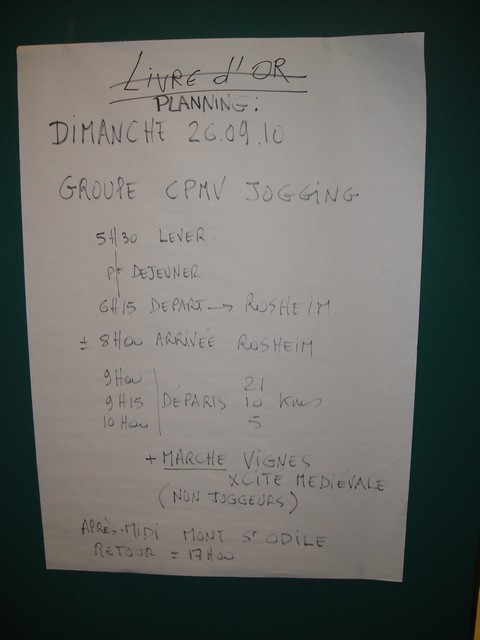 LIVRE d'OR
PLANNING:
DIMANCHE 26.09.10
GROUPE CPMV JOGGING
5H30 LEVER
Pt DEJEUNER
6H15 DEPART → ROSHEIM
± 8H00 ARRIVÉE ROSHEIM
9H00 21
9H15 DÉPARTS 10 Kms
10H00 5
+ MARCHE VIGNES
XCITE MEDIÉVALE
(NON JOGGEURS)
APRÈS-MIDI MONT St ODILE
RETOUR = 17H00